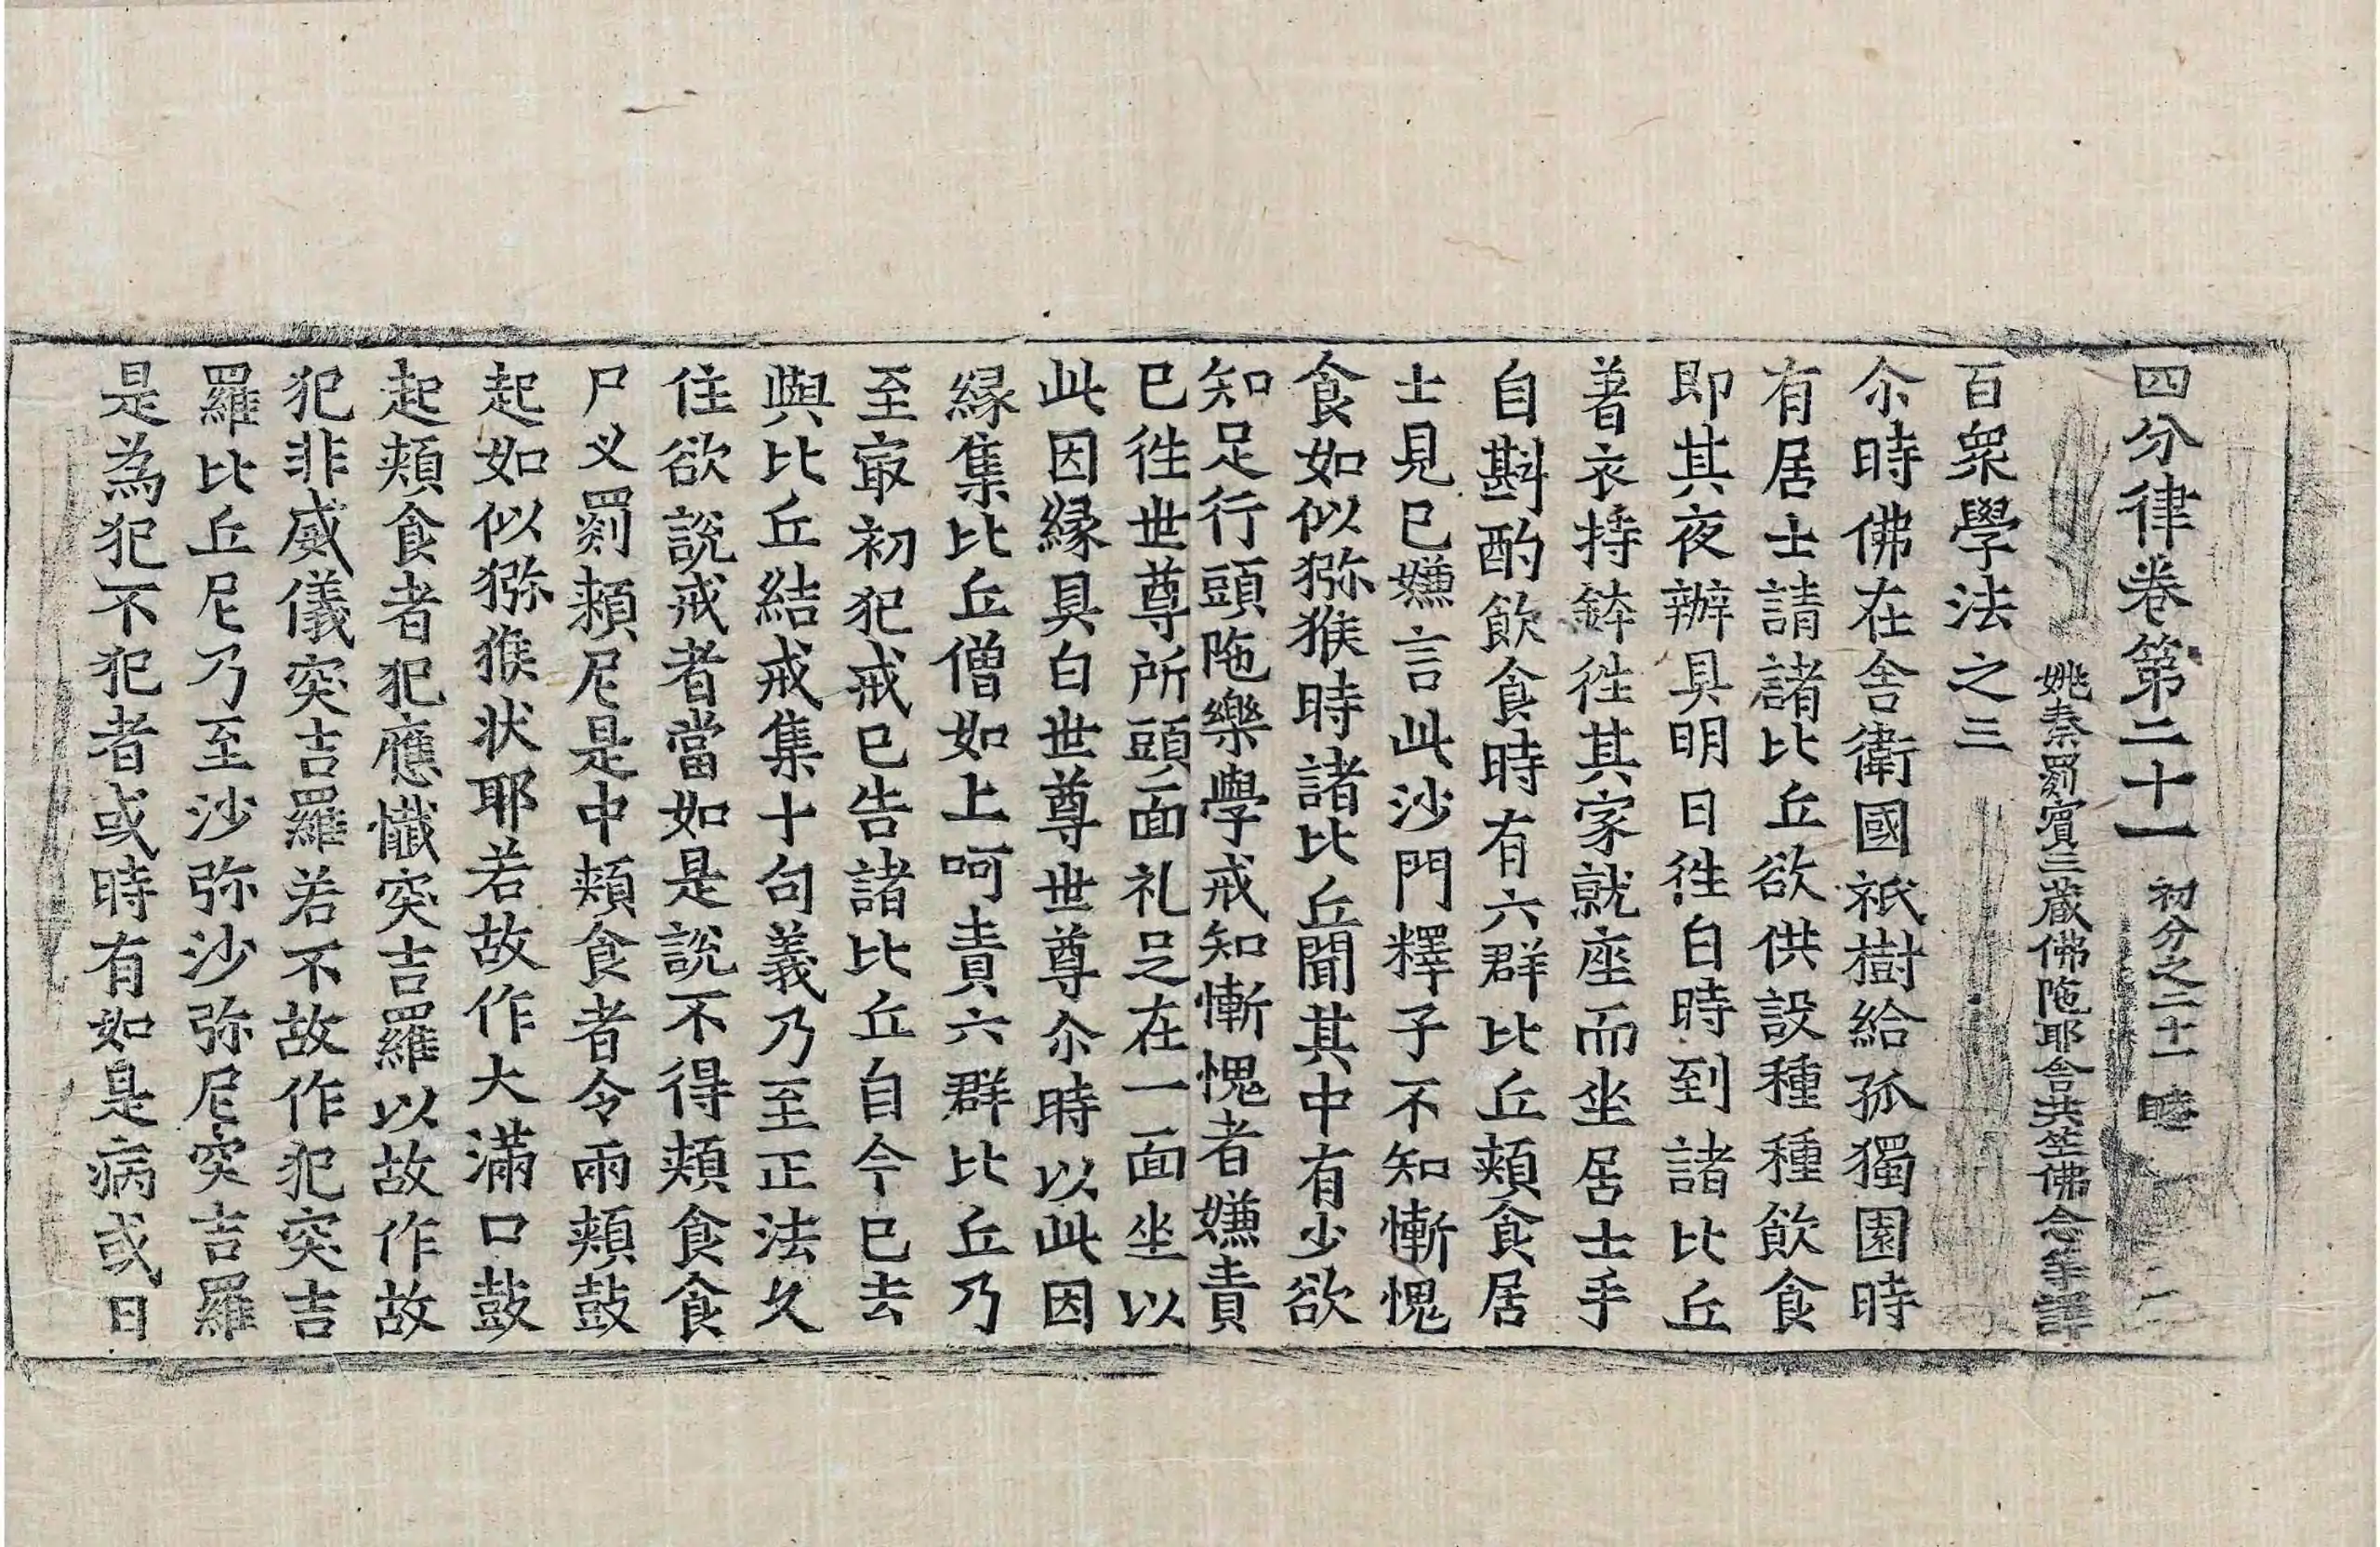 四分律卷第二十一 初分之二十一 睦
姚秦罽賓三藏佛陁耶舍共竺佛念等譯
百衆學法之三
尒時佛在舍衛國祇樹給孤獨園時
有居士請諸比丘欲供設種種飲食
即其夜辦具明日徃白時到諸比丘
著衣持鉢徃其家就座而坐居士手
自斟酌飲食時有六群比丘頰食居
士見已嫌言此沙門釋子不知慚愧
食如似猕猴時諸比丘聞其中有少欲
知足行頭陁樂學戒知慚愧者嫌責
已徃世尊所頭面礼足在一面坐以
此因緣具白世尊世尊尒時以此因
緣集比丘僧如上呵責六群比丘乃
至㝡初犯戒已告諸比丘自今已去
與比丘結戒集十句義乃至正法久
住欲說戒者當如是說不得頰食食
尸叉罽頼尼是中頰食者令兩頰鼓
起如似猕猴状耶若故作大滿口鼓
起頰食者犯應懺突吉羅以故作故
犯非威儀突吉羅若不故作犯突吉
羅比丘尼乃至沙弥沙弥尼突吉羅
是為犯不犯者或時有如是病或日